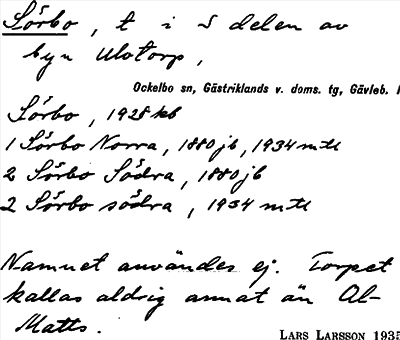 Sörbo, t i S delen av
byn Ulvtorp,
Ockelbo sn, Gästriklands v. doms. tg, Gävleb.
Sörbo, 1928 kb
1 Sörbo Norra, 1880 jb, 1934 mtl
2 Sörbo Södra, 1880 jb
2 Sörbo södra, 1934 mtl
Namnet användes ej. Torpet
kallas aldrig annat än Ol-
Matts.
LARS LARSSON 1935